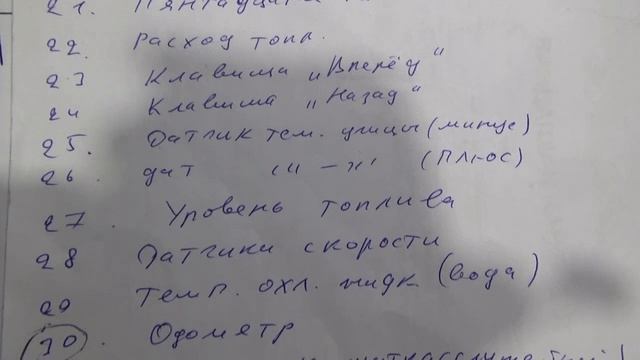 21.
22. Расход топл.
23 Клавиша „Вперёд"
24 Клавиша „Назад"
25. Датчик тем. улицы (минус)
26. дат –"– (плюс)
27. Уровень топлива
28 Датчики скорости
29 темп. охл. жидк. (вода)
30. Одометр